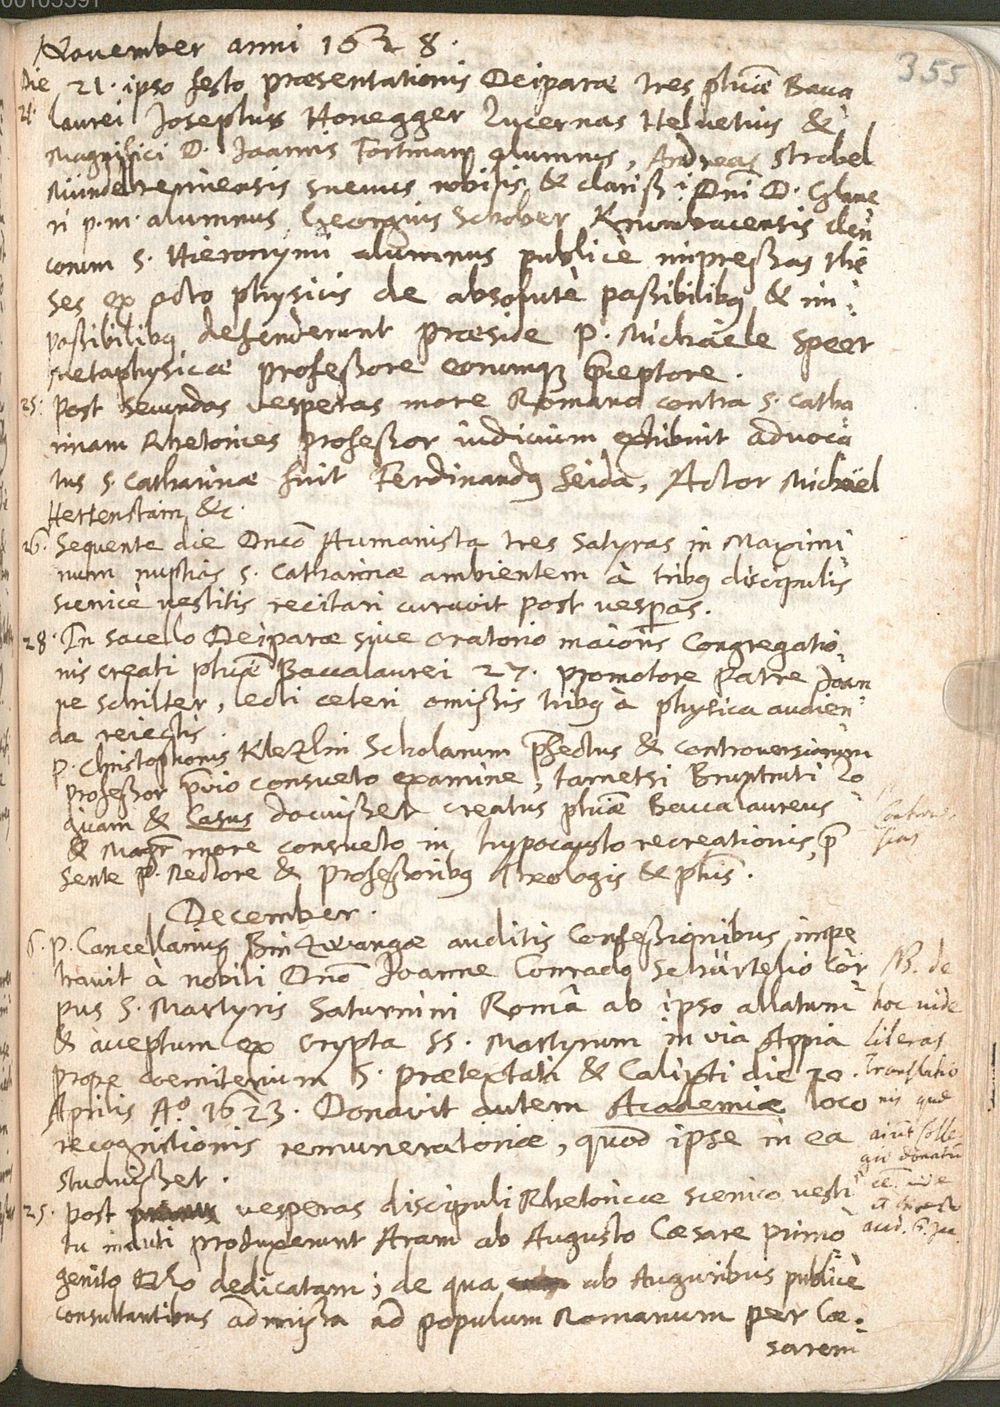 00103391
355
November anni 1628.
Die 21. ipso festo præsentationis Deiparæ tres phiæ Bacca
21. laurei Josephus Honegger Lucernas Helvetius &
Magnifici D. Joannis Fortman alumnus, Andreas Strobel
suevus nobilis & clariss: Dni D.
ri p.m. alumnus, Georgius Schober Krumbacensis
corum S. Hieronymi alumnus publicè impressas the
ses ex octo physicis de absolutè passibilibq & im:
passibilibq defenderunt præside P. Michaele Speer
Metaphysicæ professore eorumq pceptore.
25. Post secundas vesperas more Romano contra S. Catha
rinam Rhetorices professor iudicium exhibuit advoca
tus S. Catharinæ fuit Ferdinandq Seida, Actor Michael
Hertenstain &c.
26. Sequente die Dnco Humanista tres Satyras in Maximi
num nuptias S. Catharinæ ambientem à tribq discipulis
scenicè vestitis recitari curavit post vesperas.
28. In sacello Deiparæ sive oratorio maioris Congregatio
nis creati phiæ Baccalaurei 27. promotore Patre Joan
ne Schilter, lecti ceteri omissis tribq à physica audien
da reiectis.
P. Christophorus Klezlin Scholarum pfectus & controversiarum
professor pvio consueto examine, tametsi Bruntruti Lo
gicam & Casus docuisset creatus phiæ Baccalaureus
& Magr more consueto in hypocausto recreationis, p
sente P. Rectore & Professoribq Theologis & phis.
December.
6. P. Cancellarius Binzwangæ auditis Confessionibus impe
travit à nobili Dno Joanne Conrado Schürtelio Cor
pus S. Martyris Saturnini Româ ab ipso allatum
& acceptum ex crypta SS. Martyrum in via Appia
prope coemiterium S. Prætextati & Calixti die 20.
Aprilis Ao 1623. Donavit autem Academiæ loco
recognitionis remuneratoriæ, quod ipse in ea
studuisset.
NB. de
hoc vide
literas
Translatio
nis quæ
aiunt Colle
gio donatū
25. Post vesperas discipuli Rhetoricæ scenico vesti
tu induti produxerunt Aram ab Augusto Cæsare primo
genito Dei dedicatam; de qua ab Auguribus publicè
consultantibus admissa ad populum Romanum per Cæ:
sarem